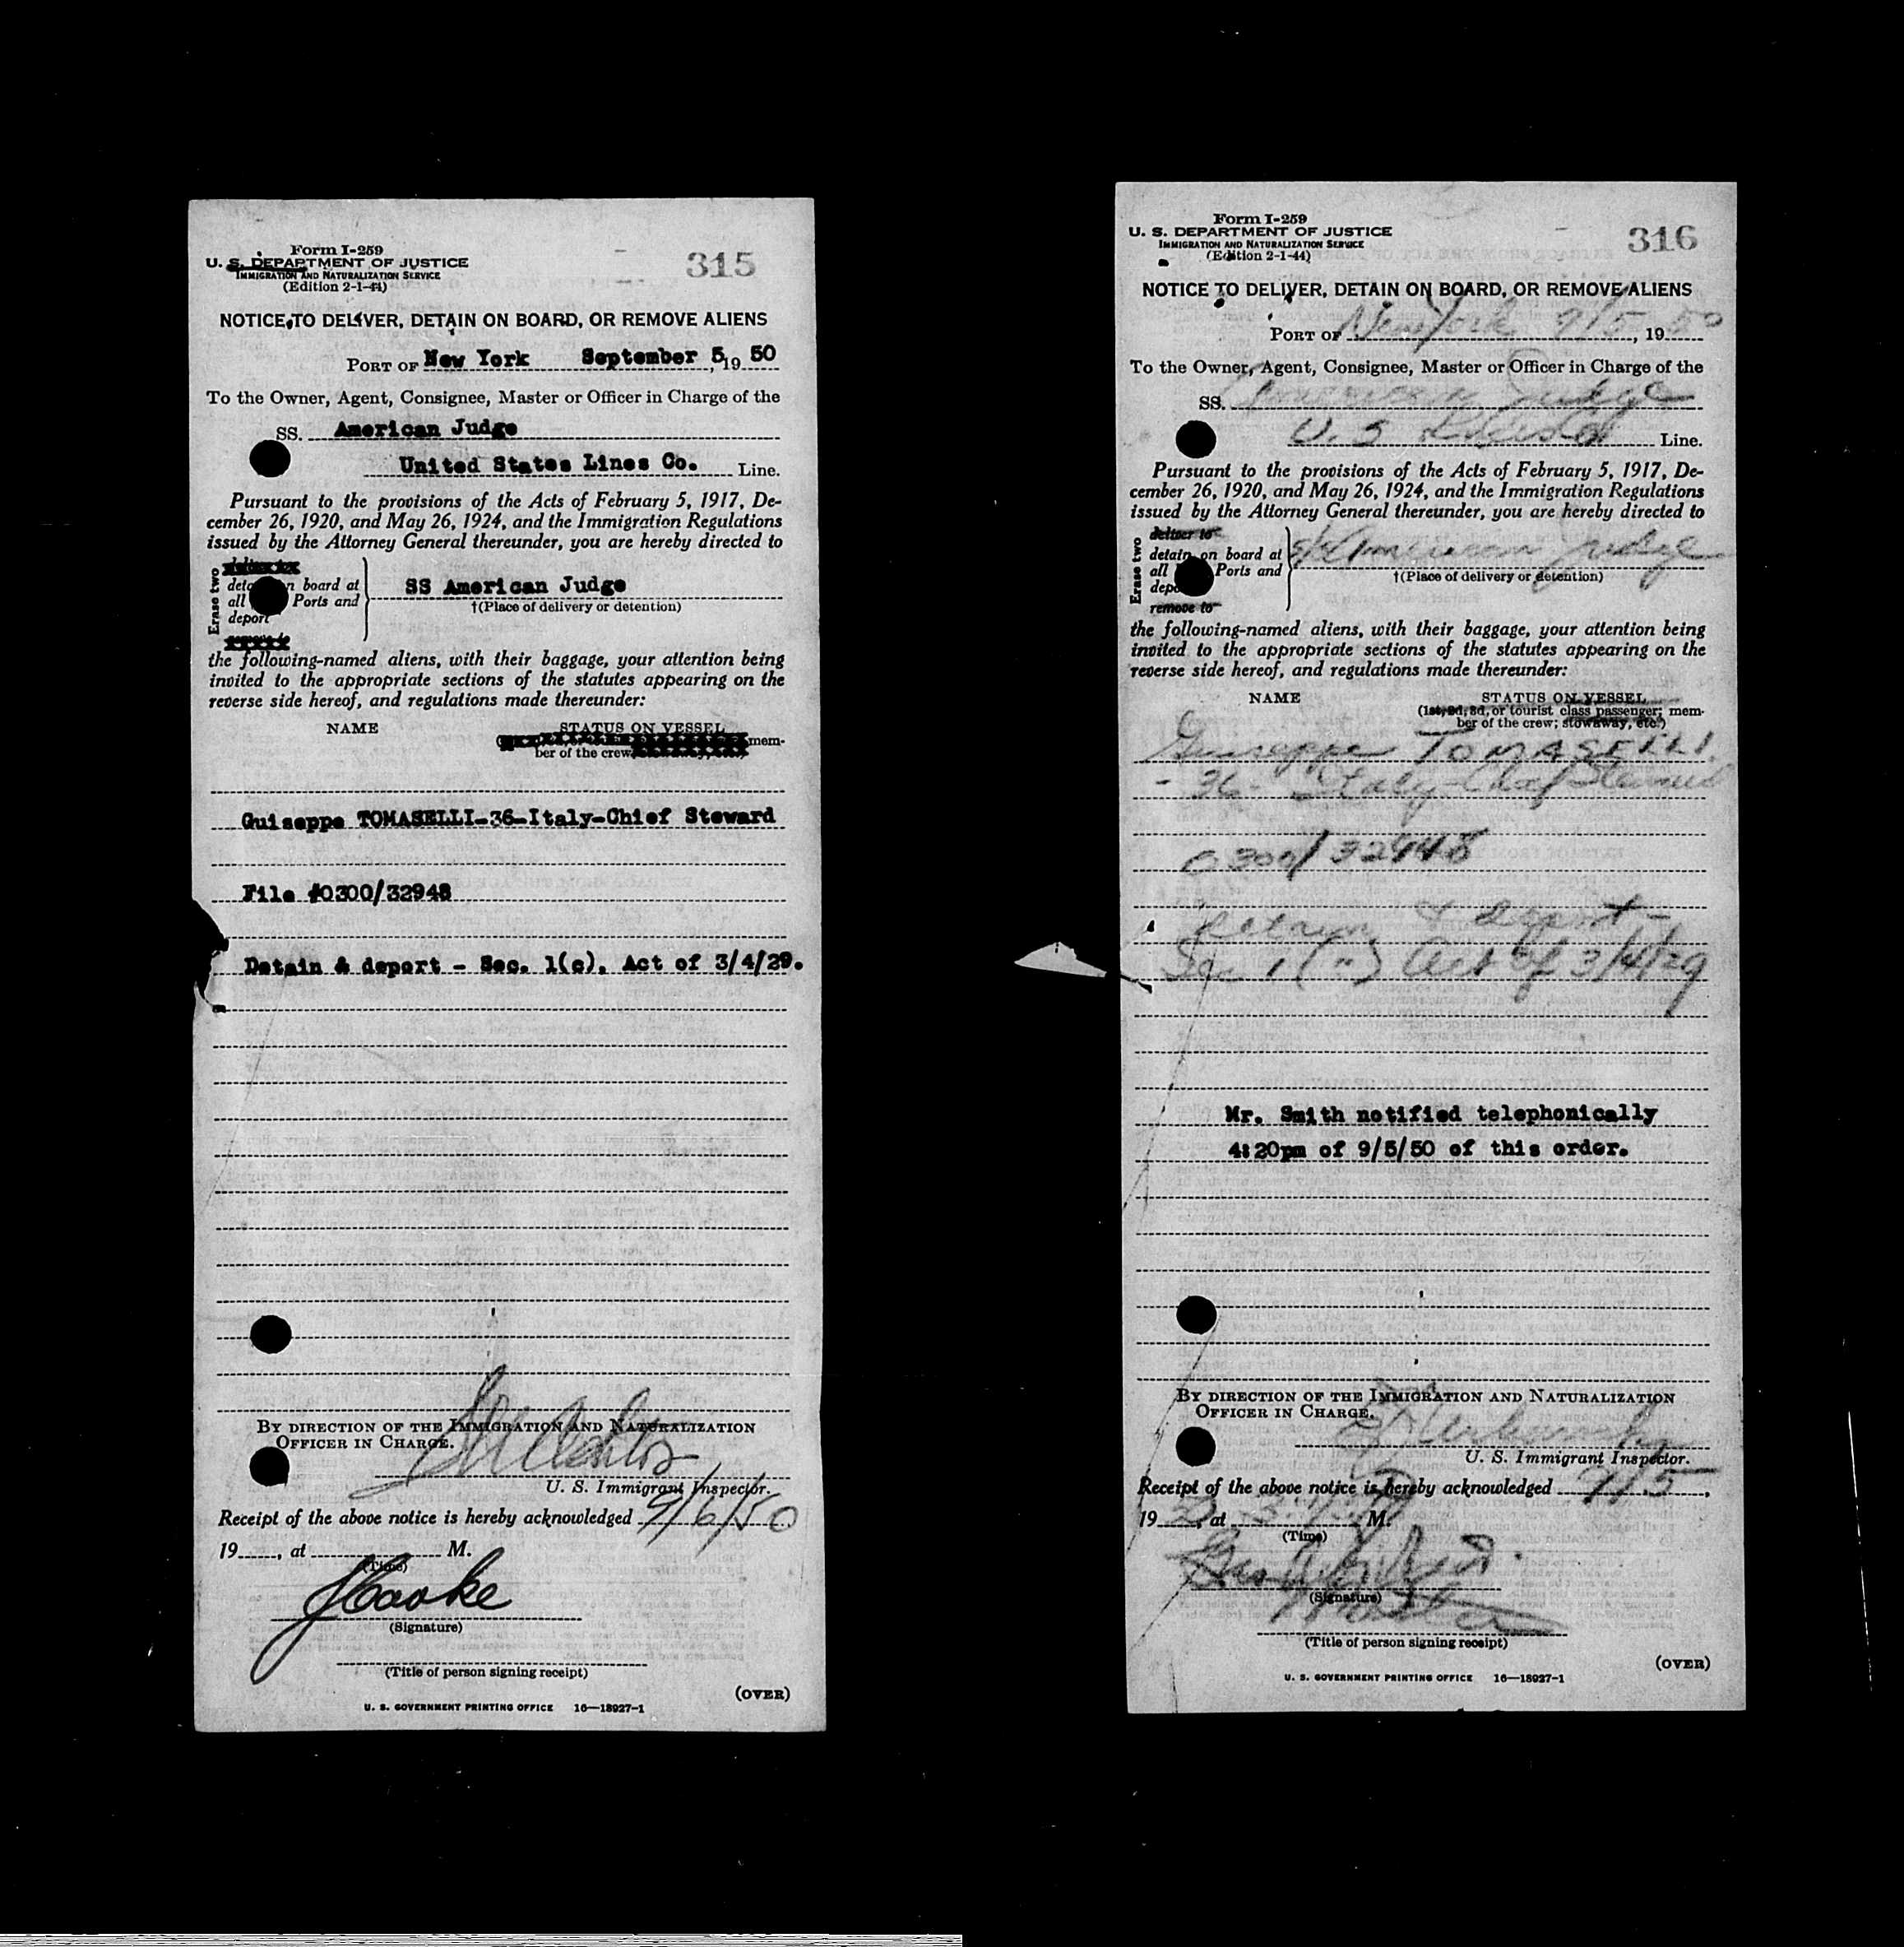 315
Form I-259
U. S. DEPARTMENT OF JUSTICE
IMMIGRATION AND NATURALIZATION SERVICE
(Edition 2-1-44)
NOTICE TO DELIVER, DETAIN ON BOARD, OR REMOVE ALIENS
PORT OF New York September 5, 19 50
To the Owner, Agent, Consignee, Master or Officer in Charge of the
SS. American Judge
United States Lines Co. Line.
Pursuant to the provisions of the Acts of February 5, 1917, De-
cember 26, 1920, and May 26, 1924, and the Immigration Regulations
issued by the Attorney General thereunder, you are hereby directed to
Erase two
on board at
all Ports and
deport
SS American Judge
†(Place of delivery or detention)
the following-named aliens, with their baggage, your attention being
invited to the appropriate sections of the statutes appearing on the
reverse side hereof, and regulations made thereunder:
NAME STATUS ON VESSEL
mem-
ber of the crew
Guiseppe TOMASELLI-36-Italy-Chief Steward
File #0300/32948
Detain & deport - Sec. 1(c), Act of 3/4/29.
BY DIRECTION OF THE IMMIGRATION AND NATURALIZATION
OFFICER IN CHARGE.
U. S. Immigrant Inspector.
Receipt of the above notice is hereby acknowledged 9/6/50
19 , at M.
(Time)
(Signature)
(Title of person signing receipt)
(OVER)
U. S. GOVERNMENT PRINTING OFFICE 16—18927-1
316
Form I-259
U. S. DEPARTMENT OF JUSTICE
IMMIGRATION AND NATURALIZATION SERVICE
(Edition 2-1-44)
NOTICE TO DELIVER, DETAIN ON BOARD, OR REMOVE ALIENS
PORT OF New York 9/5, 19 50
To the Owner, Agent, Consignee, Master or Officer in Charge of the
SS. American Judge
U. S. Line.
Pursuant to the provisions of the Acts of February 5, 1917, De-
cember 26, 1920, and May 26, 1924, and the Immigration Regulations
issued by the Attorney General thereunder, you are hereby directed to
Erase two
deliver to
detain on board at
all Ports and
remove to
American Judge
†(Place of delivery or detention)
the following-named aliens, with their baggage, your attention being
invited to the appropriate sections of the statutes appearing on the
reverse side hereof, and regulations made thereunder:
NAME STATUS ON VESSEL
(1st, 2d, 3d, or tourist class passenger; mem-
ber of the crew; stowaway, etc.)
Guiseppe TOMASELLI
- 36 - Italy - Chief Steward
0300/32948
Detain & deport -
Sec 1 (") Act of 3/4/29
Mr. Smith notified telephonically
4:20pm of 9/5/50 of this order.
BY DIRECTION OF THE IMMIGRATION AND NATURALIZATION
OFFICER IN CHARGE.
U. S. Immigrant Inspector.
Receipt of the above notice is hereby acknowledged 9/5,
19 , at M.
(Time)
(Signature)
(Title of person signing receipt)
(OVER)
U. S. GOVERNMENT PRINTING OFFICE 16—18927-1